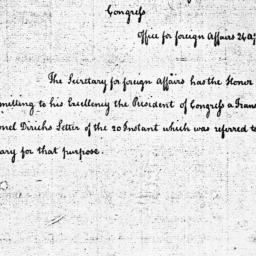 Congreſs
Office for foreign Affairs 24
The Secretary for foreign Affairs has the Honor
mitting to his Excellency the President of Congreſs a Trans
onel Dirichs Letter of the 20 Instant which was referred to
ary for that purpose.